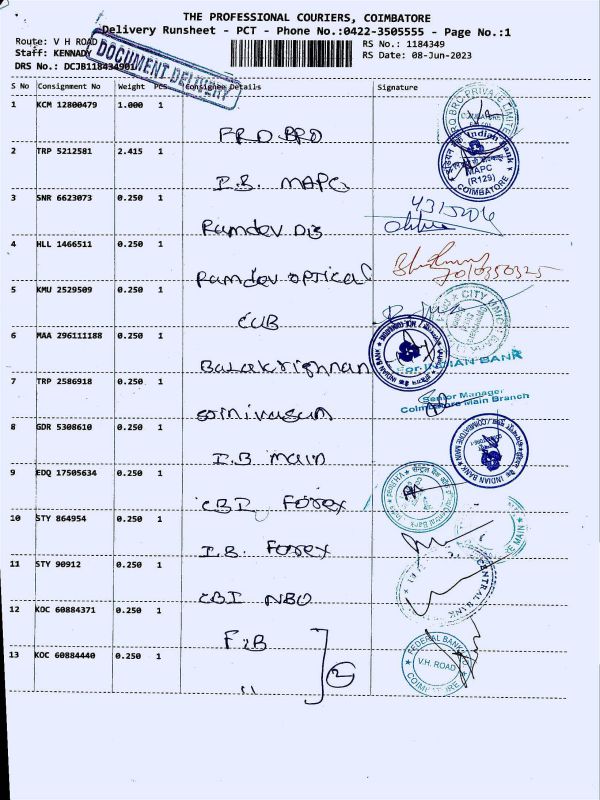 THE PROFESSIONAL COURIERS, COIMBATORE
Delivery Runsheet - PCT - Phone No.:0422-3505555 - Page No.:1
Route: V H ROAD
RS No.: 1184349
Staff: KENNADY
RS Date: 08-Jun-2023
DRS No.: DCJB118434901
DOCUMENT DELIVERY
S No Consignment No Weight PCS Consignee Details Signature
1 KCM 12800479 1.000 1
PRO BRO
2 TRP 5212581 2.415 1
I.B. MAPC
INDIAN Bank
MAPC
(R129)
COIMBATORE
3 SNR 6623073 0.250 1
Ramdev DB
4 HLL 1466511 0.250 1
Ramdev optical
5 KMU 2529509 0.250 1
CUB
6 MAA 296111188 0.250 1
Balakrishnan
For INDIAN BANK
7 TRP 2586918 0.250 1
Srinivasan
Senior Manager
Coimbatore Main Branch
8 GDR 5308610 0.250 1
I.B main
INDIAN BANK
9 EDQ 17505634 0.250 1
CBI Forex
10 STY 864954 0.250 1
I.B. Forex
11 STY 90912 0.250 1
CBI NBO
CENTRAL BANK
12 KOC 60884371 0.250 1
F2B
2
FEDERAL BANK
V.H. ROAD
13 KOC 60884440 0.250 1
"